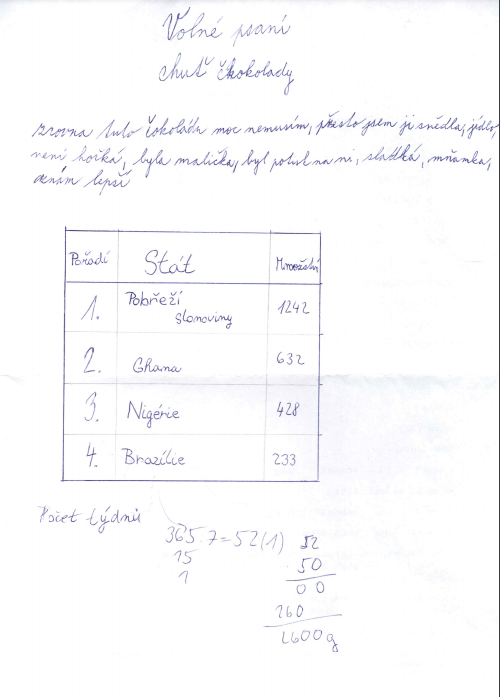 Volné psaní
chuť čkokolady
zrovna tuto čokoládu moc nemusím, přesto jsem ji snědla, jídlo,
není hořká, byla malička, byl potisk na ni, sladká, mňamka,
znám lepší
Pořadí Stát Množství
1. Pobřeží slonoviny 1242
2. Ghana 632
3. Nigérie 428
4. Brazílie 233
Počet týdnů
365:7=52(1) 52
15 50
1 00
260
2600g